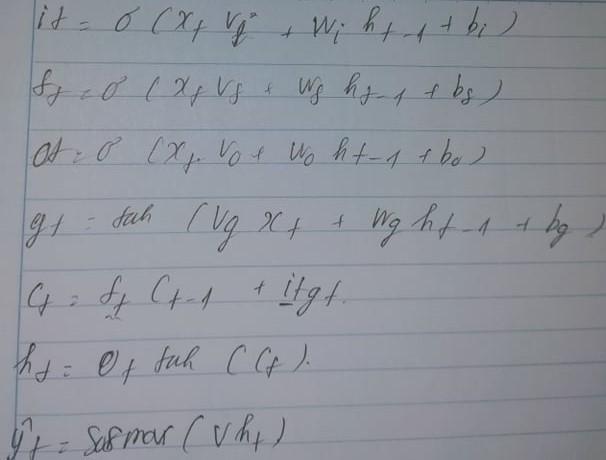 it = σ (xt Vi + Wi ht-1 + bi)
ft = σ (xt Vf + Wf ht-1 + bf)
ot = σ (xt. Vo + Wo ht-1 + bo)
gt = tah (Vg xt + Wg ht-1 + bg)
Ct = ft Ct-1 + it gt.
ht = Ot tah (Ct).
ŷt = Sofmax (V ht)